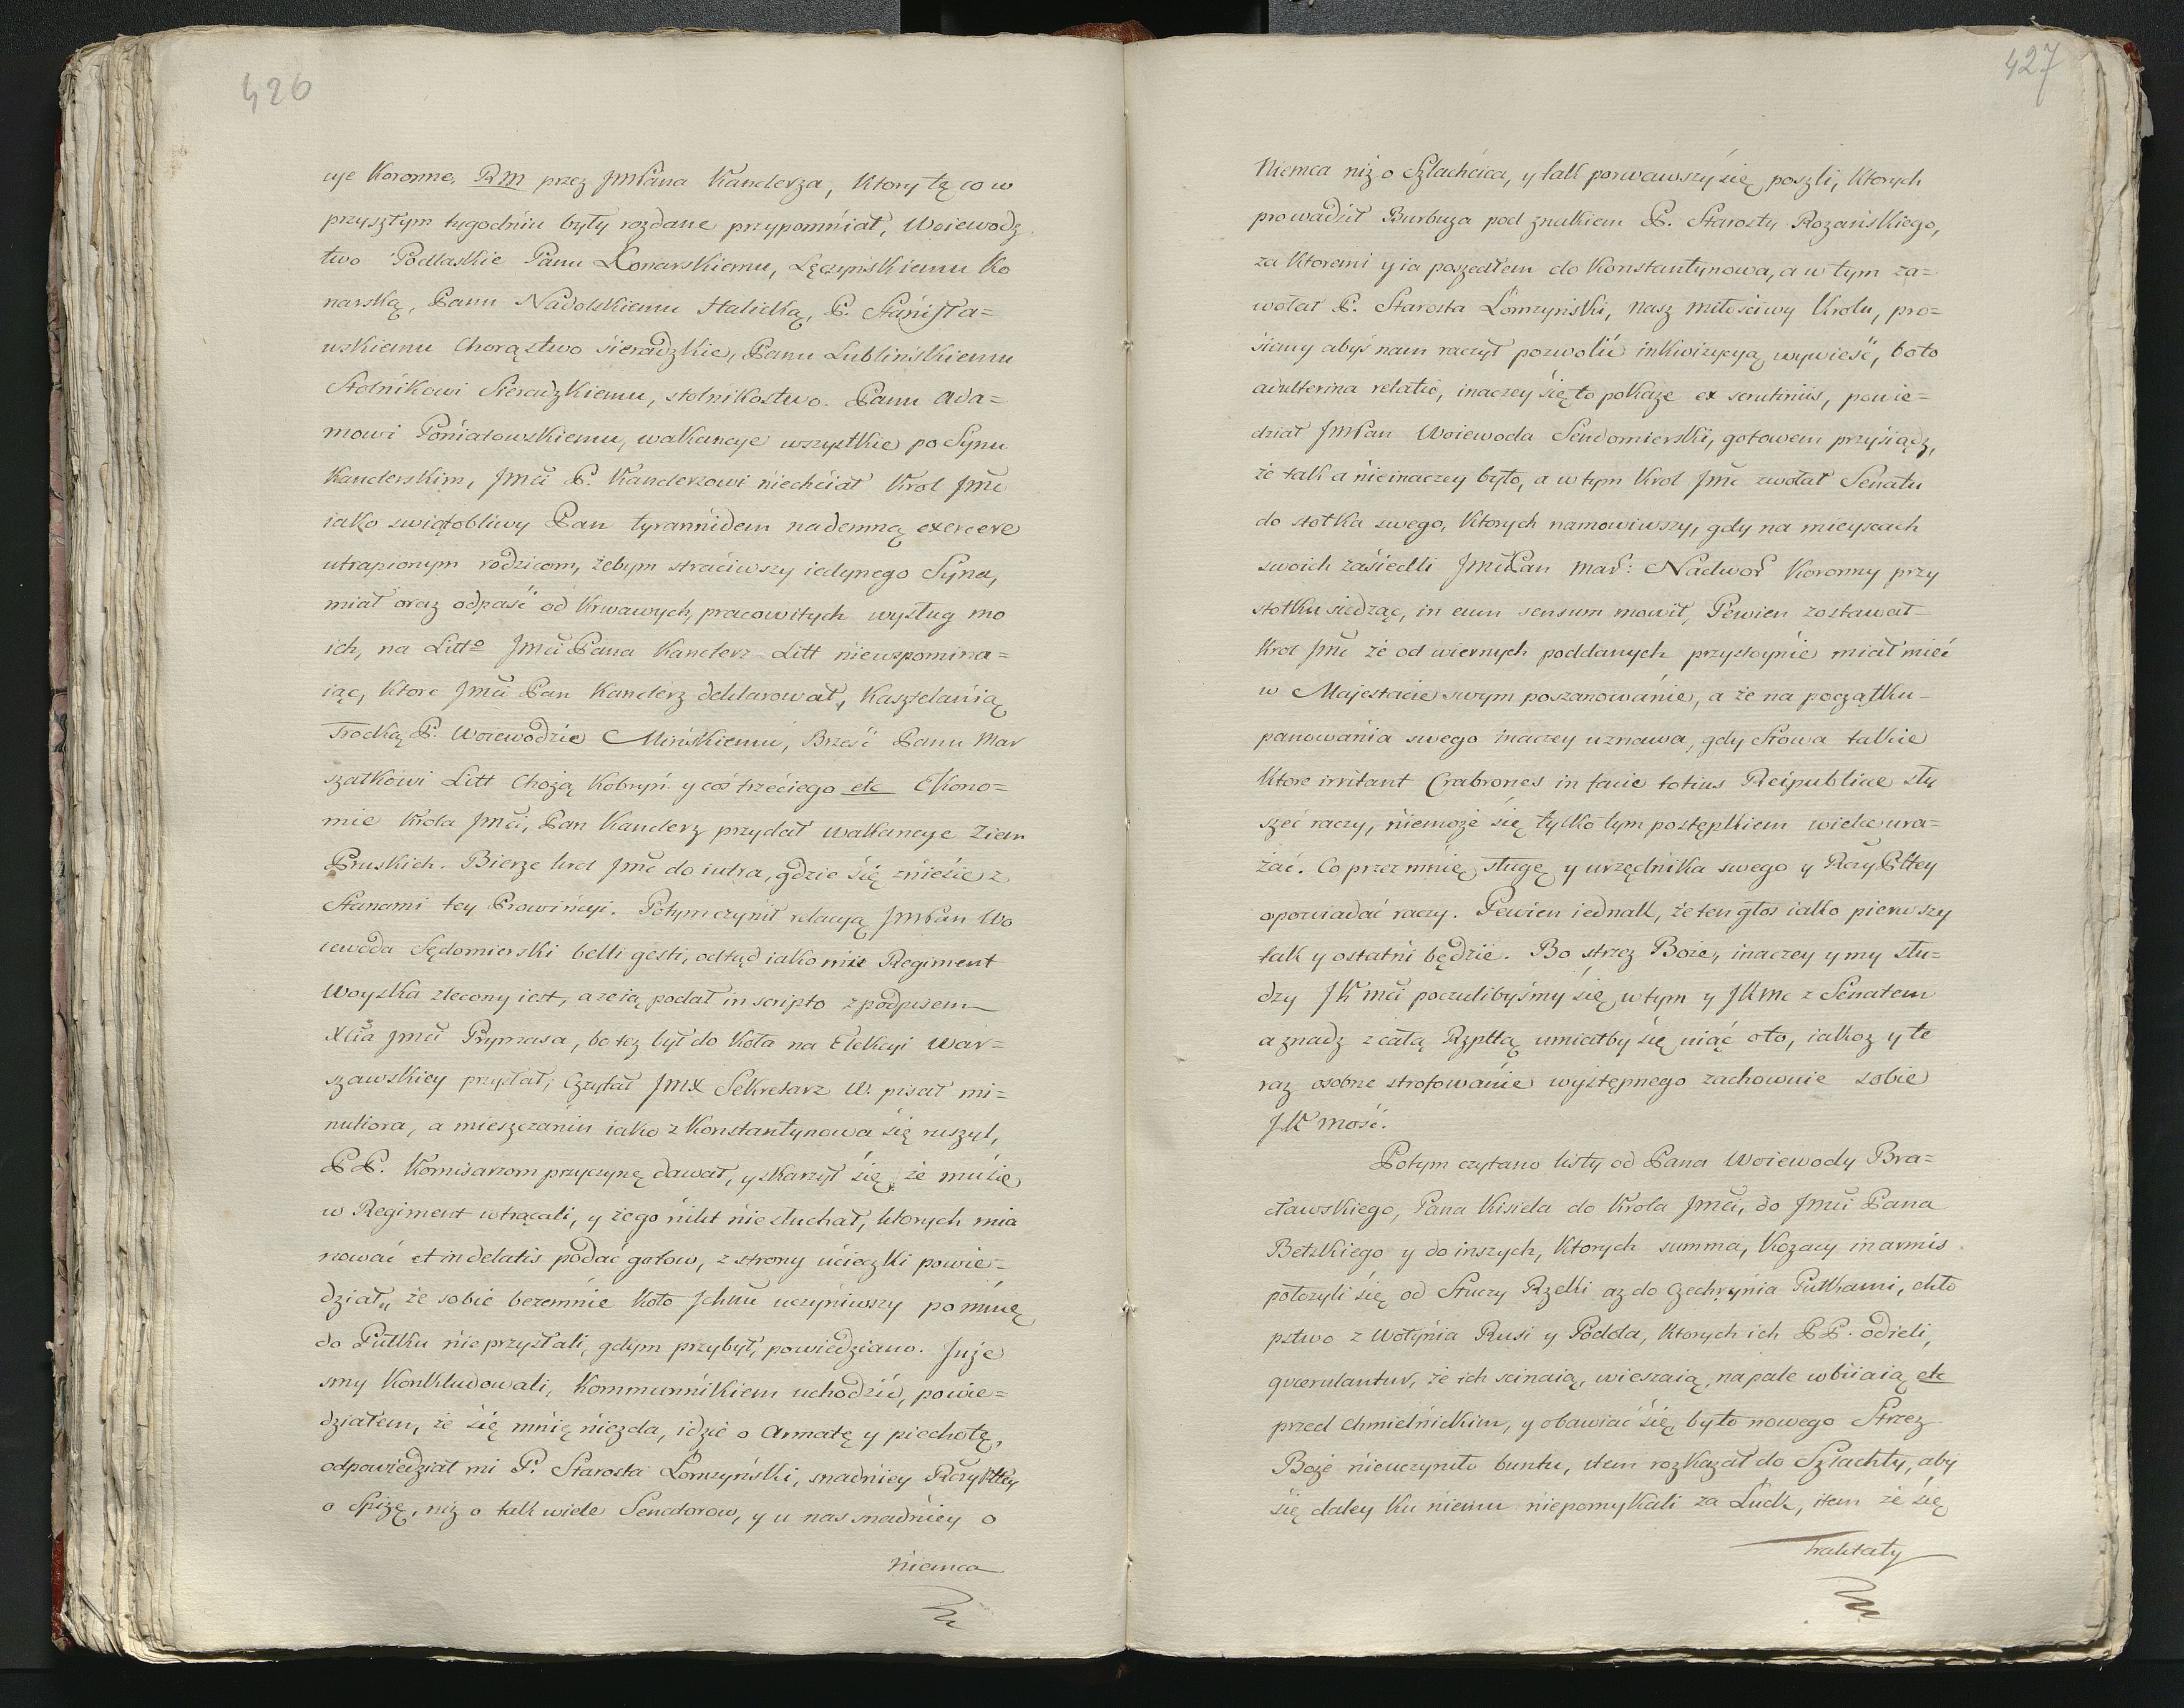 426
cye Koronne, RM przez JmPana Kanclerza, Ktory tę co w
przyszłym tygodniu były rozdane przypomniał, Woiewodz
two Podlaskie Panu Konarskiemu, Łęczyńskiemu Ko
narską, Panu Nadolskiemu Halicką, P. Stanisła=
wskiemu Chorąstwo Sieradzkie, Panu Lublińskiemu
Stolnikowi Sieradzkiemu, stolnikostwo. Panu Ada=
mowi Poniatowskiemu, wakancye wszystkie po Synu
Kanclerskim, Jmći P. Kanclerzowi niechciał Krol Jmć
iako swiątobliwy Pan tyrannidem nademną exercere
utrapionym rodzicom, żebym straciwszy iedynego Syna,
miał oraz odpaść od Krwawych, pracowitych wysług mo
ich, na Litto Jmći Pana Kanclerz Litt niewspomina=
iąc, Ktore Jmći Pan Kanclerz deklarował, Kasztelanią
Trocką P. Woiewodzie Mińskiemu, Brześć Panu Mar
szałkowi Litt Chożą Kobryń y coś trzeciego etc Ekono=
mie Krola Jmći, Pan Kanclerz przydał wakancye Ziem
Pruskich. Bierze krol Jmć do iutra, gdzie się zniesie z
Stanami tey Prowincyi. Potym czynił relacyą JmPan Wo
iewoda Sędomierski belli gesti, odtąd iako mu Regiment
Woyska zlecony iest, a ze ią podał in scripto z podpisem
Xcia Jmći Prymasa, bo też był do Koła na Elekcyi War=
szawskiey przysłał, Czytał JmX Sekretarz W. pisał mi=
nutiora, a mieszczaniu iako z Konstantynowa się ruszył,
PP. Komisarzom przyczynę dawał, y skarżył się, że mu się
w Regiment wtrącali, y że go nikt nie słuchał, ktorych mia
nować et in delatis podać gotow, z strony ucieczki powie=
dział, że sobie bezemnie Koło Ichm uczyniwszy po mnie
do Pułku nie przysłali, gdym przybył, powiedziano. Juże
smy Konkludowali, Kommunnikiem uchodzić, powie=
działem, że się mnię niezda, idzie o Armatę y piechotę,
odpowiedział mi P. Starosta Łomzyński, snadniey Rzyptey
o Spiżę, niż o tak wiele Senatorow, y u nas snadniey o
niemca
427
Niemca niż o Szlachcica, y tak porwawszy się poszli, Ktorych
prowadził Burbuza pod znakiem P. Starosty Rozańskiego,
za Ktoremi y ia poszedłem do Konstantynowa, a w tym za=
wołał P. Starosta Łomzyński, nasz miłościwy Krolu, pro=
siemy abyś nam raczył pozwolić inkwizycyą wywieść, bo to
adulterina relatio, inaczey się to pokaże ex scrutiniis, powie=
dział JmPan Woiewoda Sendomierski, gotowem przysiądz,
że tak a nieinaczey było, a w tym Krol Jmć zwołał Senatu
do stołka swego, Ktorych namowiwszy, gdy na mieyscach
swoich zasiedli JmćPan Mar: Nadwor Koronny przy
stołku siedząc, in eum sensum mowił, Pewien zostawał
Krol Jmć że od wiernych poddanych przystoynie miał mieć
w Majestacie swym poszanowanie, a że na początku
panowania swego inaczey uznawa, gdy Słowa takie
Ktore irritant Crabrones in facie totius Reipublicae sły
szeć raczy, niemoże się tylko tym postępkiem wielce ura=
żać. Co przez mnię sługę y urzędnika swego y RzyPltey
opowiadać raczy. Pewien iednak, że ten głos iako pierwszy
tak y ostatni będzie. Bo strzez Boże, inaczey y my słu=
dzy JK mći poczulibyśmy się w tym y JKmć z Senatem
a znadz z całą Rzpltą umiałby się uiąć oto, iakoz y te
raz osobne strofowanie występnego zachownie sobie
JK mość.
Potym czytano listy od Pana Woiewody Bra=
cławskiego, Pana Kisiela do Krola Jmći, do Jmći Pana
Bełzkiego y do inszych, Ktorych summa, Kozacy in armis
położyli się od Słuczy Rzeki aż do Czechrynia Pułkami, chło
pstwo z Wołynia Rusi y Podola, Ktorych ich PP. odieli,
quaerulantur, że ich scinaią, wieszaią, na pale wbiiaią etc
przed Chmielnickim, y obawiać się by to nowego Strzez
Boże nieuczyniło buntu, item rozkazał do Szlachty, aby
się daley ku niemu niepomykali za Łuck, item że się
Traktaty